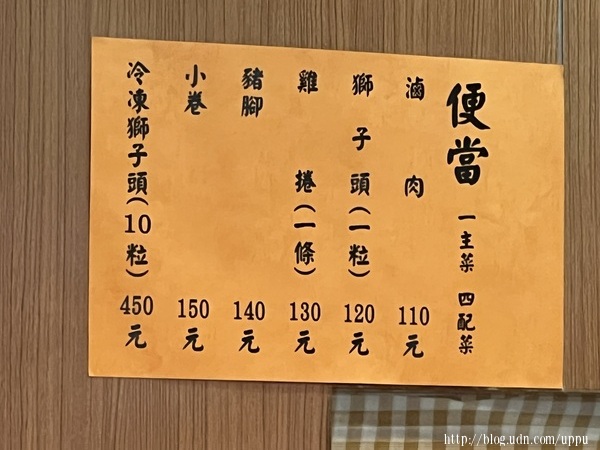 便當 一主菜 四配菜
滷肉 110元
獅子頭(一粒) 120元
雞捲(一條) 130元
豬腳 140元
小卷 150元
冷凍獅子頭(10粒) 450元
http://blog.udn.com/uppu